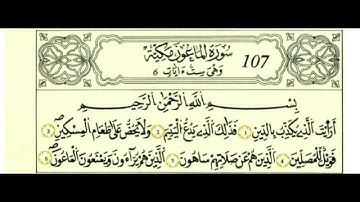 سُورَةُ الْمَاعُونَ مَكِّيَّةٌ 107
وَهْيَ سِتُّ ءَايَاتٍ 6
بِسْمِ اللَّهِ الرَّحْمَٰنِ الرَّحِيمِ
أَرَٰيْتَ الَّذِي يُكَذِّبُ بِالدِّينِ 1 فَذَٰلِكَ الَّذِي يَدُعُّ الْيَتِيمَ 2 وَلَا يَحُضُّ عَلَىٰ طَعَامِ الْمِسْكِينِ 3
فَوَيْلٌ لِّلْمُصَلِّينَ 4 الَّذِينَ هُمْ عَن صَلَاتِهِمْ سَاهُونَ 5 الَّذِينَ هُمْ يُرَآءُونَ وَيَمْنَعُونَ الْمَاعُونَ 6